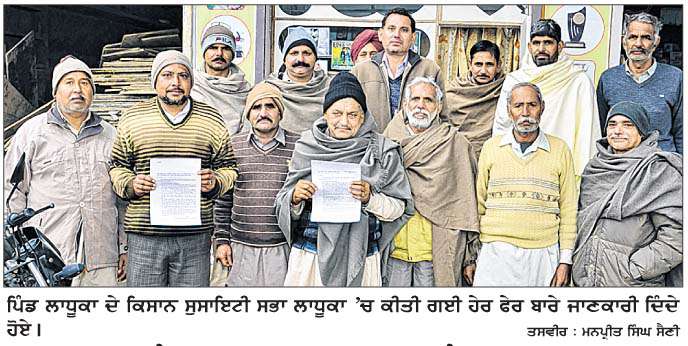 ਪਿੰਡ ਲਾਧੂਕਾ ਦੇ ਕਿਸਾਨ ਸੁਸਾਇਟੀ ਸਭਾ ਲਾਧੂਕਾ 'ਚ ਕੀਤੀ ਗਈ ਹੇਰ ਫੇਰ ਬਾਰੇ ਜਾਣਕਾਰੀ ਦਿੰਦੇ
ਹੋਏ।
ਤਸਵੀਰ : ਮਨਪ੍ਰੀਤ ਸਿੰਘ ਸੈਣੀ